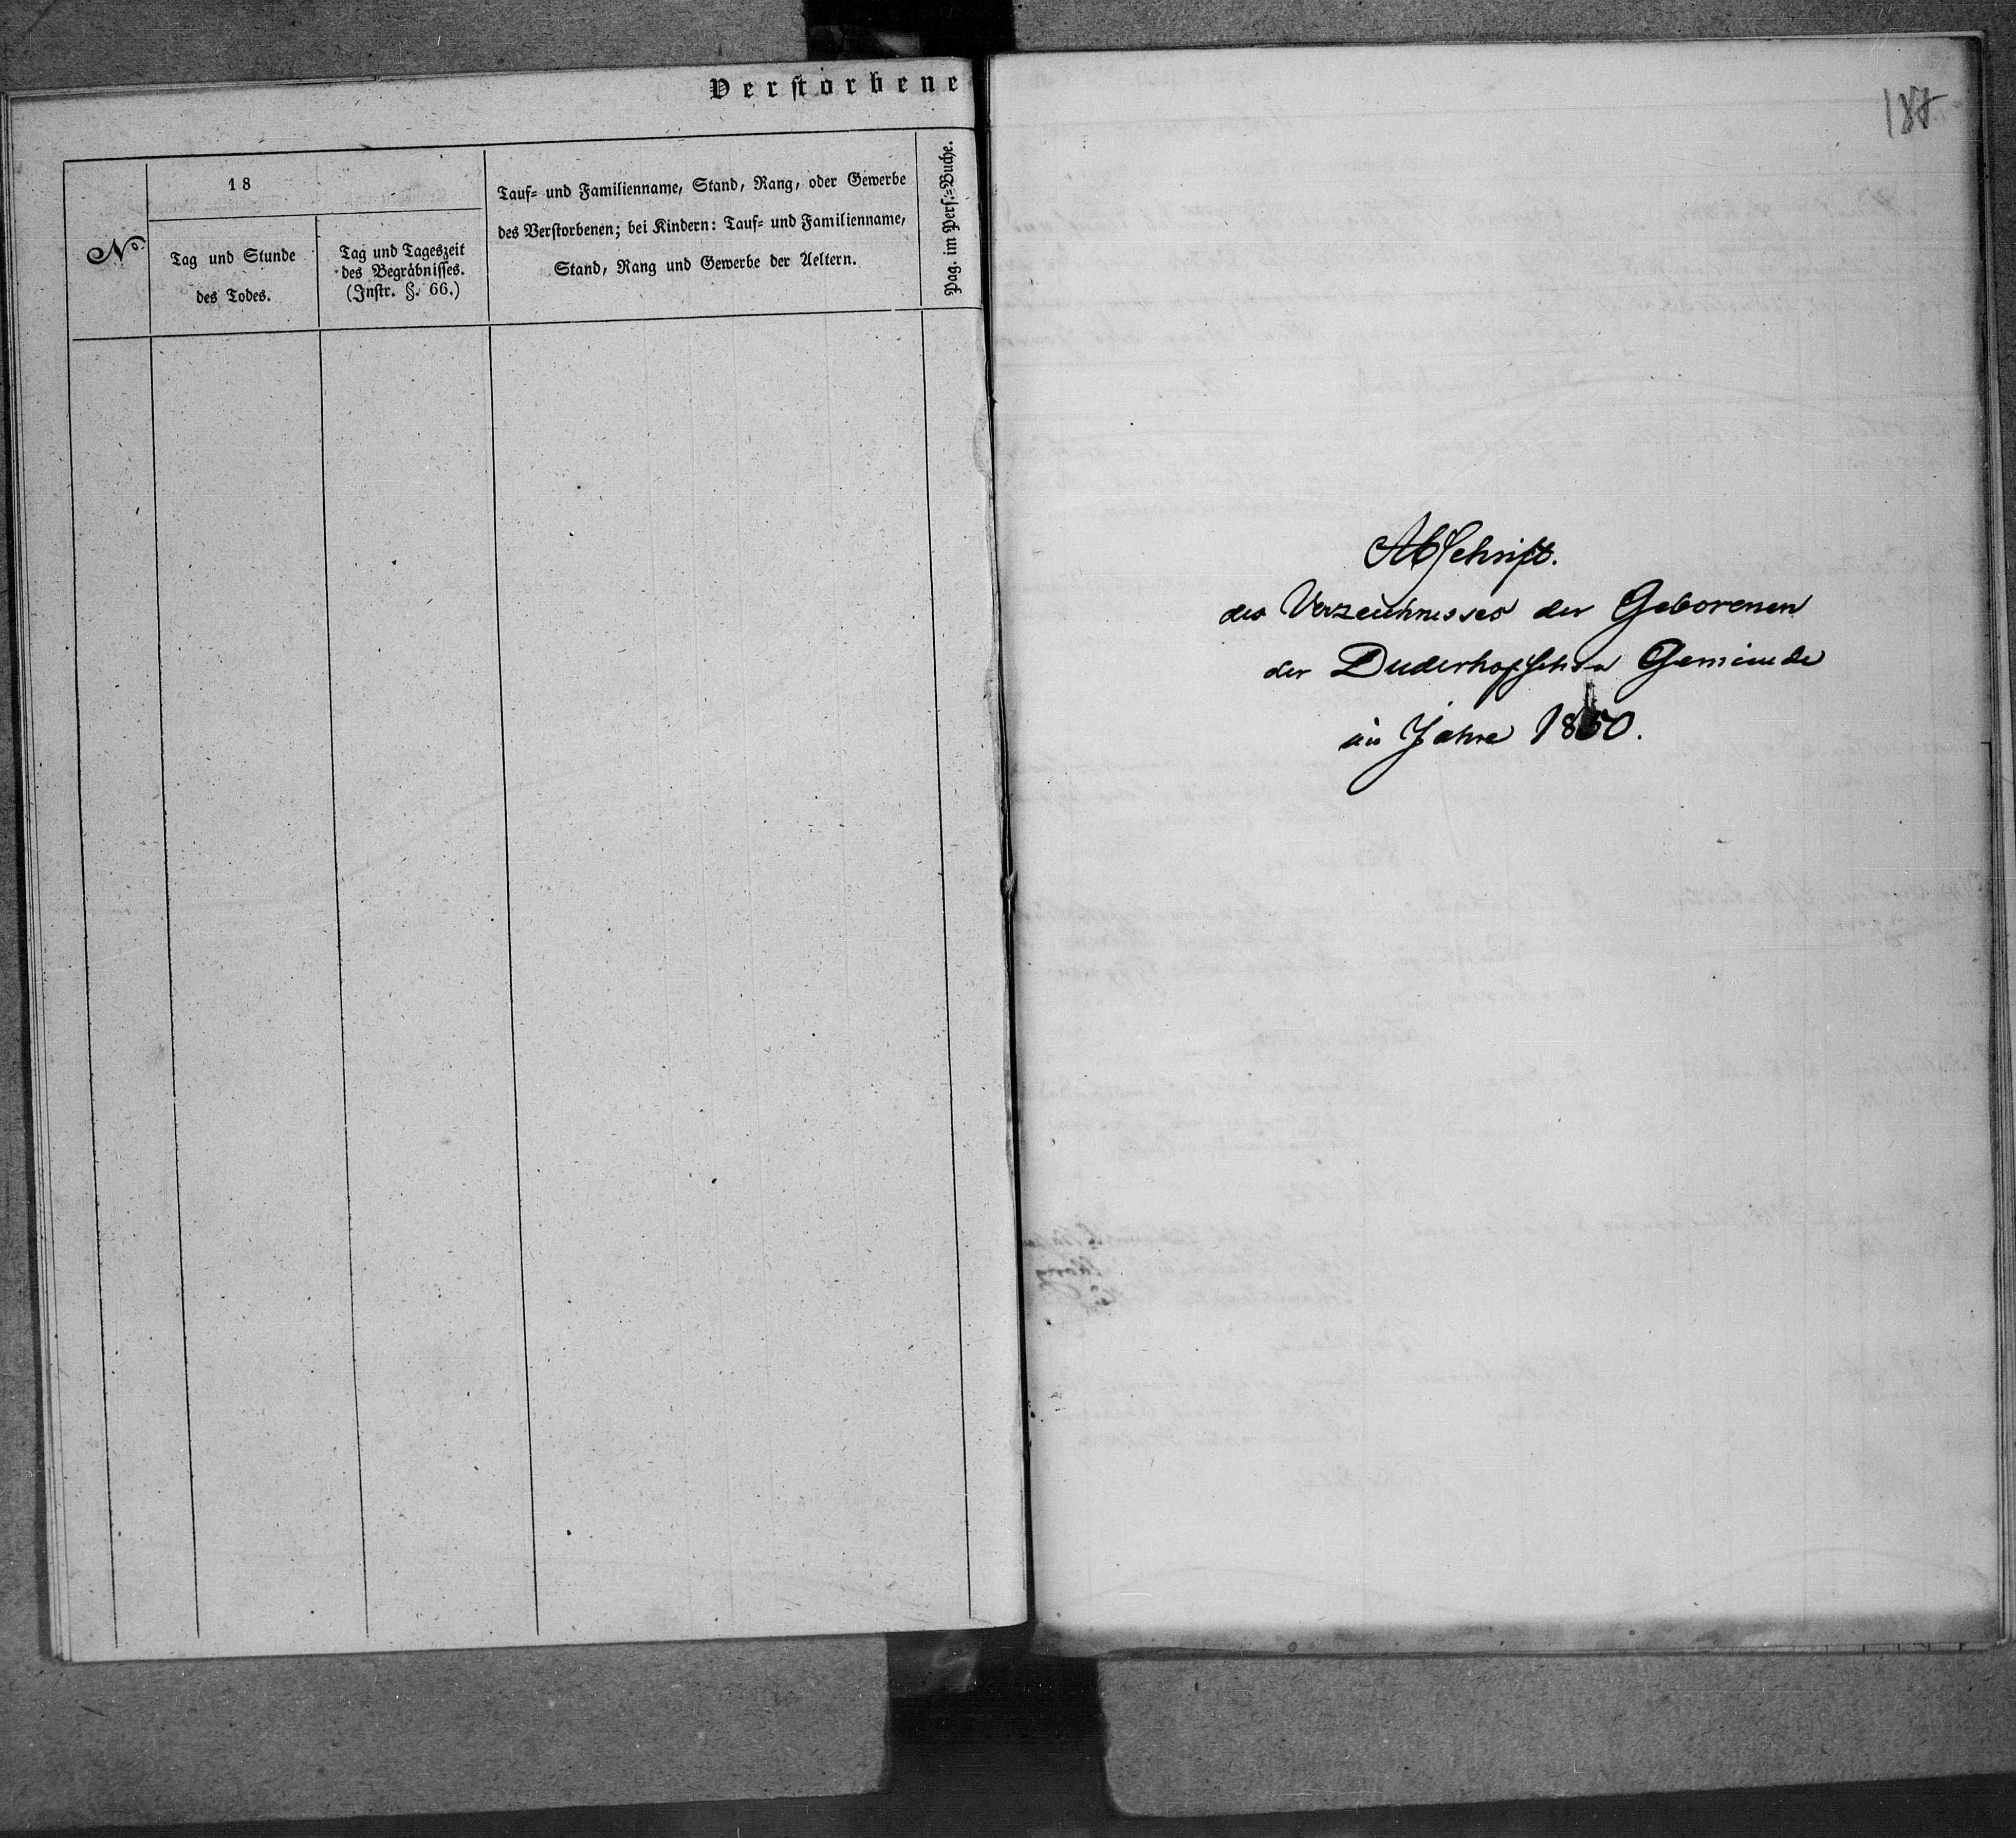 Verstorbene
No.
18
Tag und Stunde
des Todes.
Tag und Tageszeit
des Begräbnisses.
(Instr. §. 66.)
Tauf= und Familienname, Stand, Rang, oder Gewerbe
des Verstorbenen; bei Kindern: Tauf= und Familienname,
Stand, Rang und Gewerbe der Aeltern.
Pag. im Pers.=Buche.
187
Abschrift.
des Verzeichnisses der Geborenen
der Duderhofschen Gemeinde
im Jahre 1850.